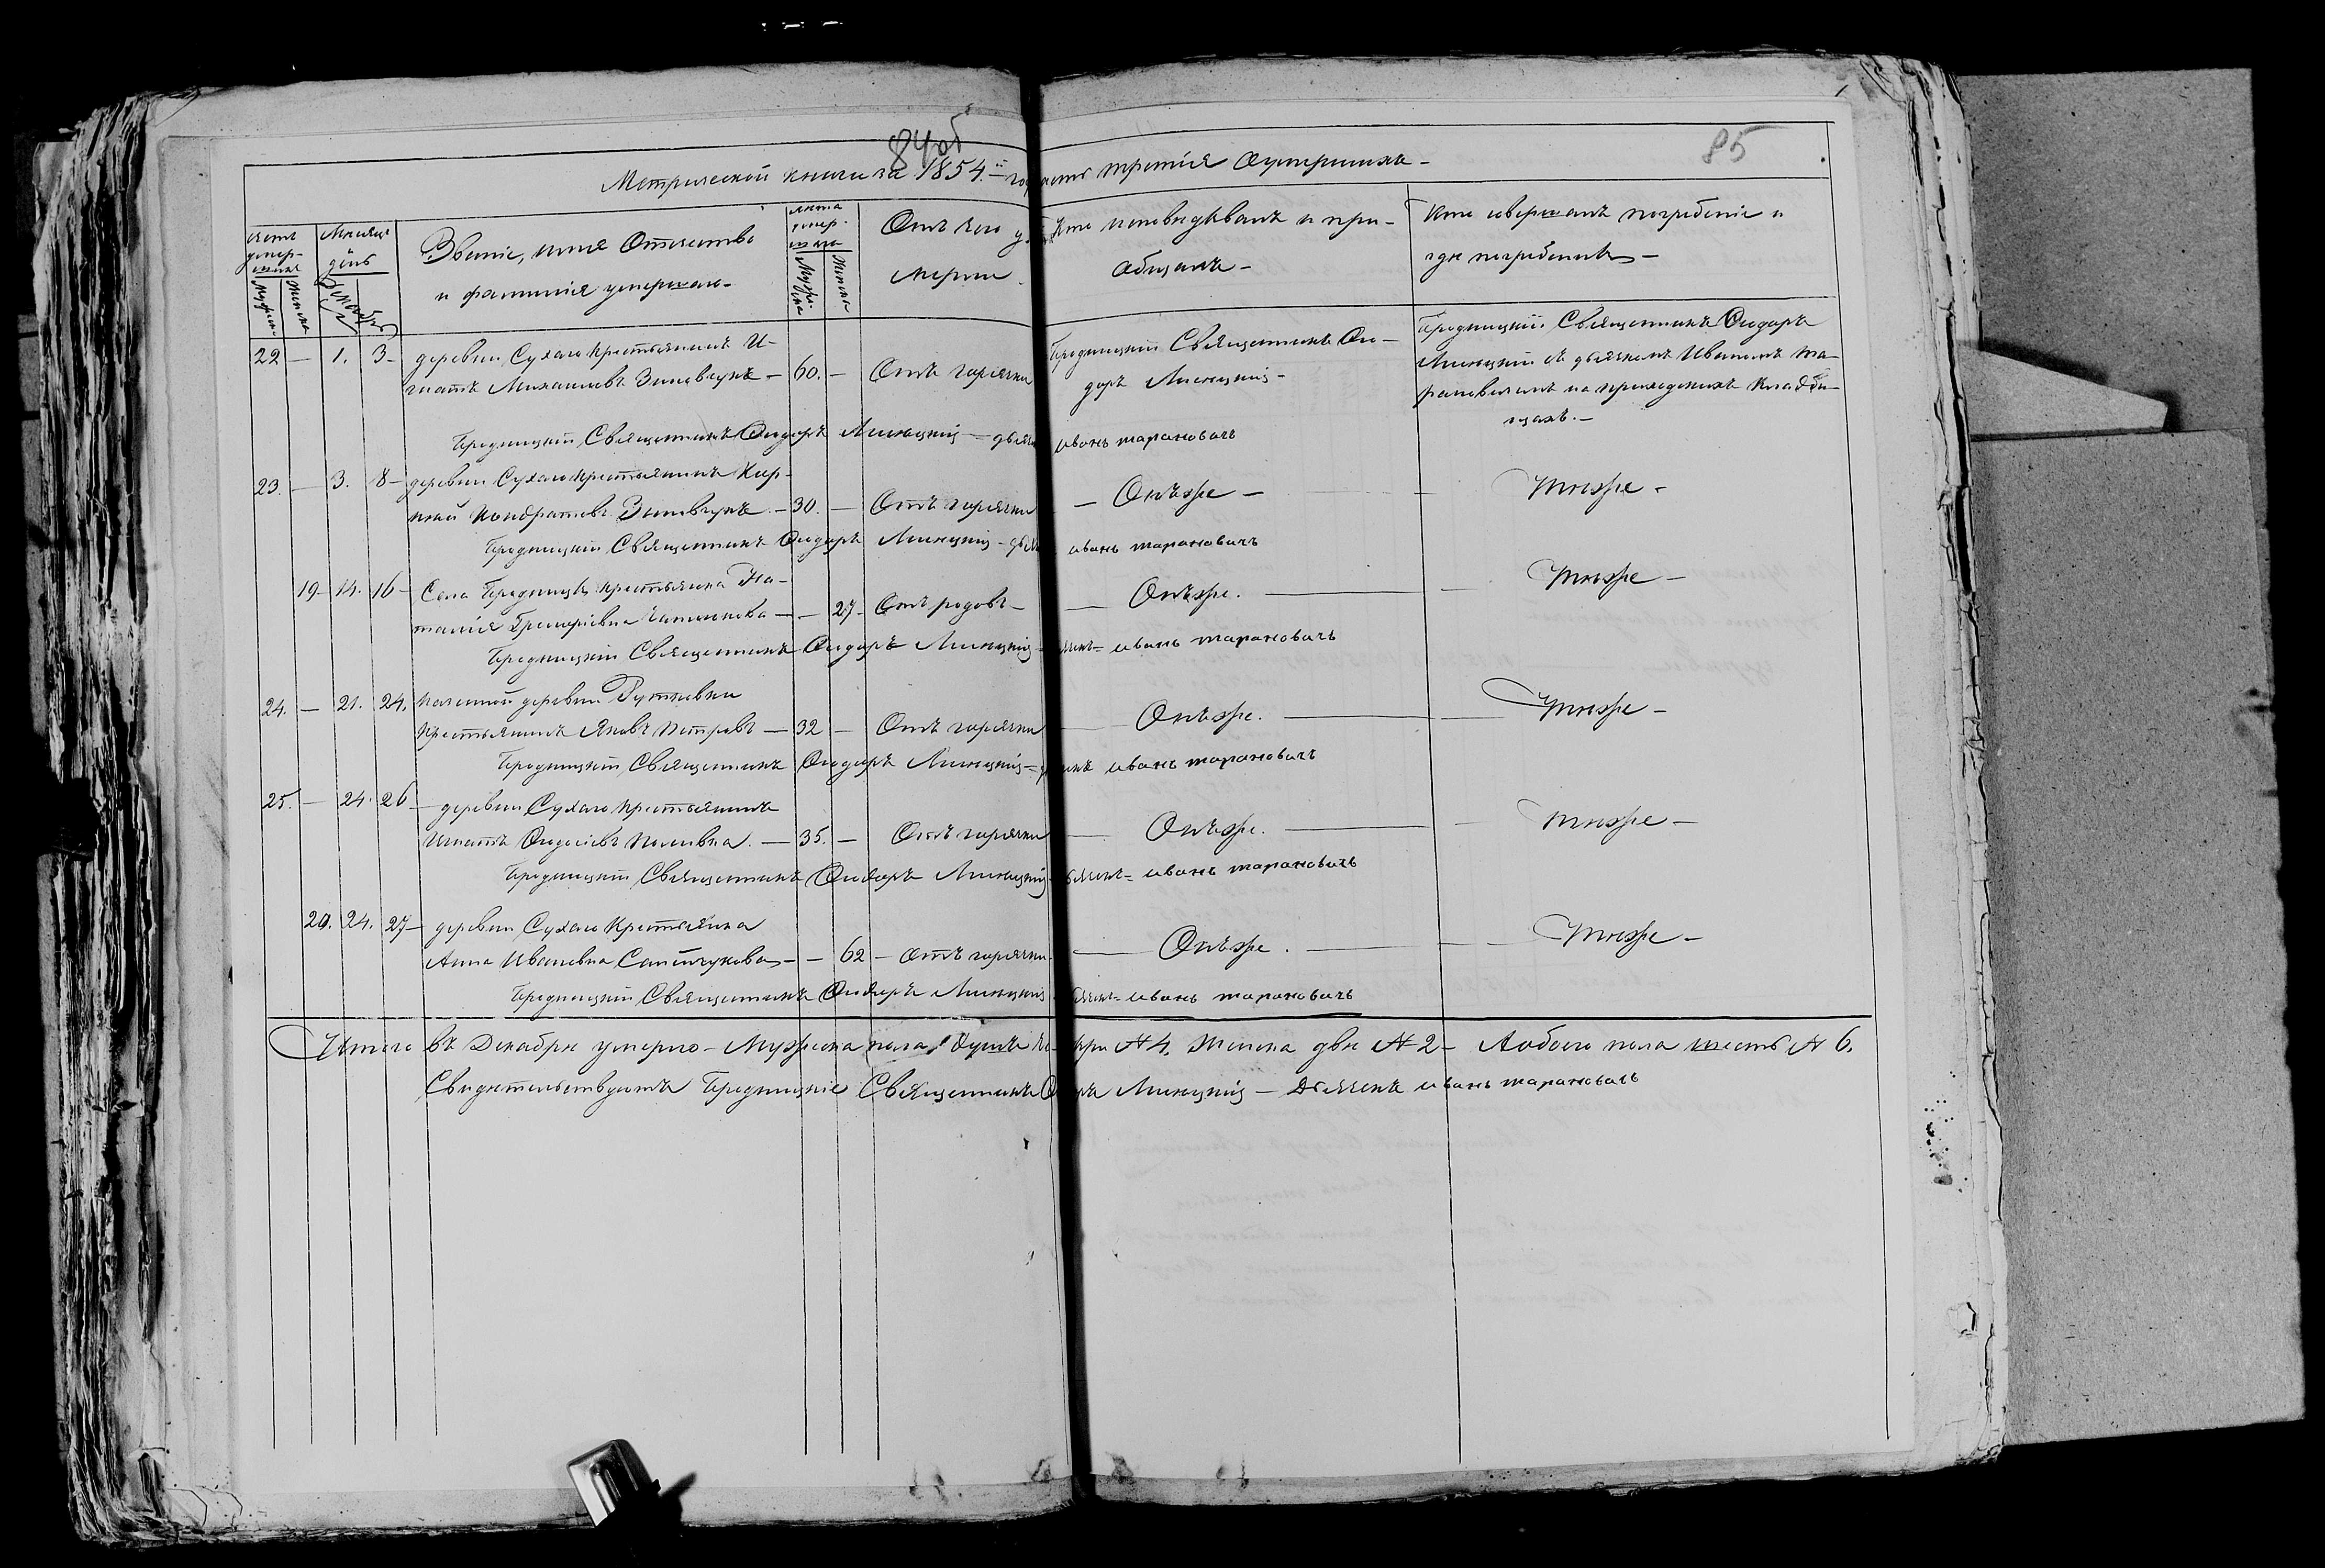 84об
85
Метрической книги за 1854.й го часть третія О умершихъ –
Счетъ умершихъ
Мужеска
Женска
Мѣсяцъ день
Декабрь
Званіе, имя Отчество
и фамилія умершаго –
лѣта умершаго
Мужеска
Женска
Отъ чего у
мерли
Кто исповѣдывалъ и прі–
общалъ –
Кто совершалъ погребеніе и
гдѣ погребены –
22 – 1. 3 – деревни Сухаго крестьянинъ И–
гнатъ Михаиловъ Зиновчукъ – 60. – Отъ горячки
Городницкій Священникъ Ѳео–
доръ Линицкій –
Городницкій Священникъ Ѳеодоръ
Линицкій съ дьячкомъ Иваномъ Та–
рановичемъ на приходскихъ кладби–
щахъ. –
Городницкій Священникъ Ѳеодоръ Линицкій – дьяч иванъ тарановичъ
23. – 3. 8 – деревни Сухаго крестьянинъ
Кондратовъ Зиновчукъ – 30. – Отъ горячки – Онъже – Тиѣже –
Городницкій Священникъ Ѳеодоръ Линицкій – дья иванъ тарановичъ
19 – 14. 16 – Села Городницы крестьянка На–
талія Григоріева – – 27 – Отъ родовъ – – Онъже. – Тиѣже –
Городницкій Священникъ Ѳеодоръ Линицкій – ячекъ = иванъ тарановичъ
24. – 21. 24. казенной деревни Рутковки
крестьянинъ Яковъ Петровъ – 32 – Отъ горячки – Онъже. – Тиѣже –
Городницкій Священникъ Ѳеодоръ Линицкій = д ячекъ иванъ тарановичъ
25. – 24. 26 – деревни Сухаго крестьянинъ
Игнатъ Ѳеодосіевъ – 35. – Отъ горячки – Онъже. – Тиѣже –
Городницкій Священникъ Ѳеодоръ Линицкій ьячекъ = иванъ тарановичъ
20. 24. 27 – деревни Сухаго Крестьянка
Анна Ивановна – – 62 – отъ горячки – Онъже. – Тиѣже –
Городницкій Священникъ Ѳеодоръ Линицкій ьячекъ = иванъ тарановичъ
Итого въ Декабрѣ умерло – Мужеска пола душъ че тыри № 4. Женска двѣ № 2 – А обоего пола шесть № 6.
Свидѣтельствуютъ Городницкіе Священникъ Ѳ оръ Линицкій – Дьячекъ иванъ тарановичъ